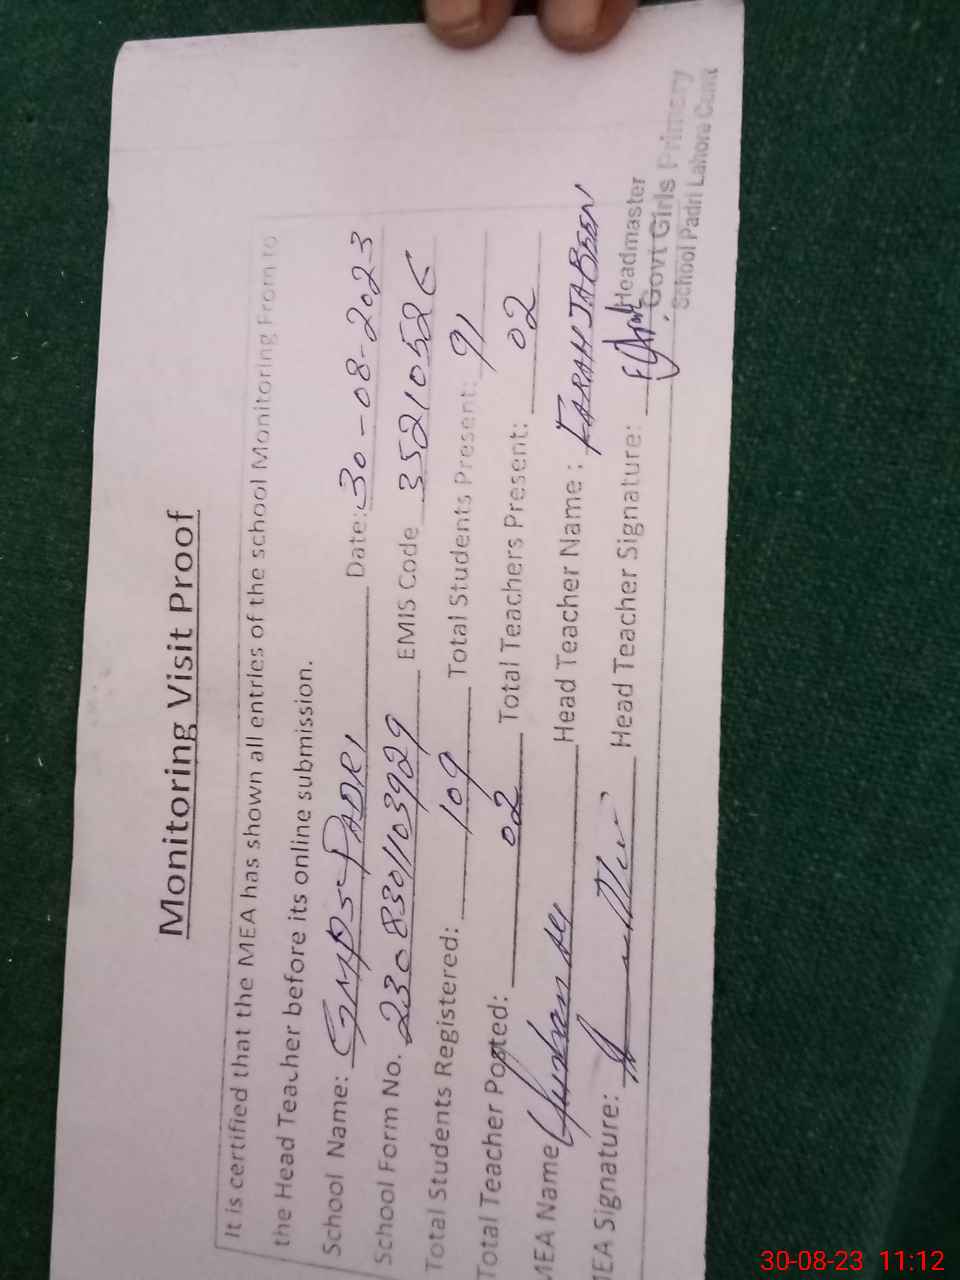 Monitoring Visit Proof
It is certified that the MEA has shown all entries of the school Monitoring From to
the Head Teacher before its online submission.
School Name: GMPS PADRI Date: 30-08-2023
School Form No. 2308301103929 EMIS Code 35210526
Total Students Registered: 109 Total Students Present: 91
Total Teacher Posted: 02 Total Teachers Present: 02
MEA Name Head Teacher Name : FARAH JABEEN
MEA Signature: Head Teacher Signature:
Headmaster
Govt Girls Primary
School Padri Lahore Cantt
30-08-23 11:12